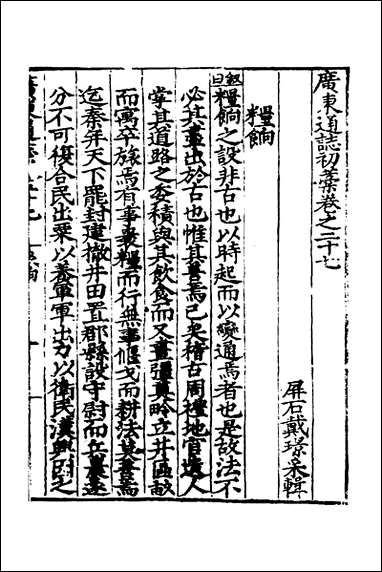 廣東通誌初藁卷之二十七
屏石戴璟采輯
糧餉
叙曰糧餉之設非古也以時起而以變通焉者也是故法不
必其盡出於古也惟其善焉已矣稽古周禮地官遺人
掌其道路之委積與其飲食而又畫疆夷畛立井區畝
而寓卒旅焉有事裹糧而行無事偃戈而耕法莫善焉
迄秦并天下罷封建撤井田置郡縣設守尉而兵農遂
分不可復合民出粟以養軍軍出力以衛民漢興因之